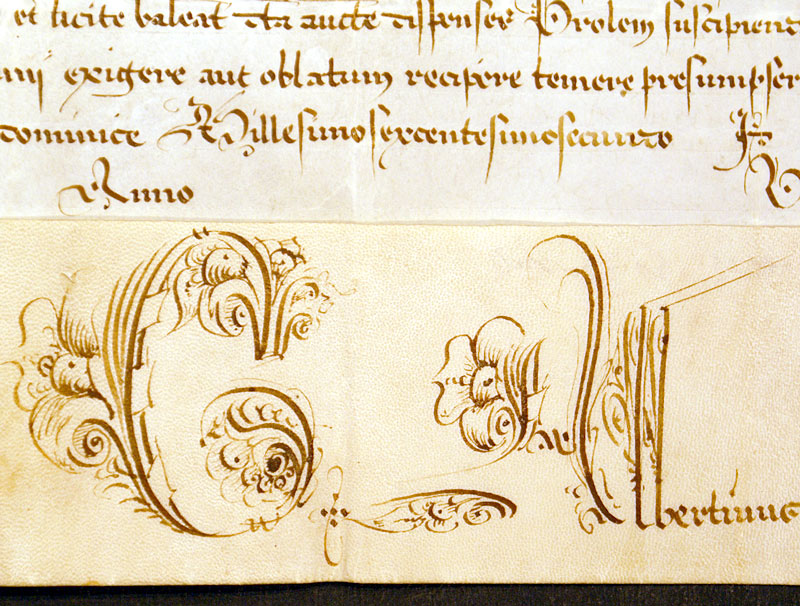 et licite valeat dta aucte dispenset Prolem suscipiend
exigere aut oblatum recipere temere presumpser
dominice Millesimosexcentesimosecundo
Anno
G
Car Albertinus